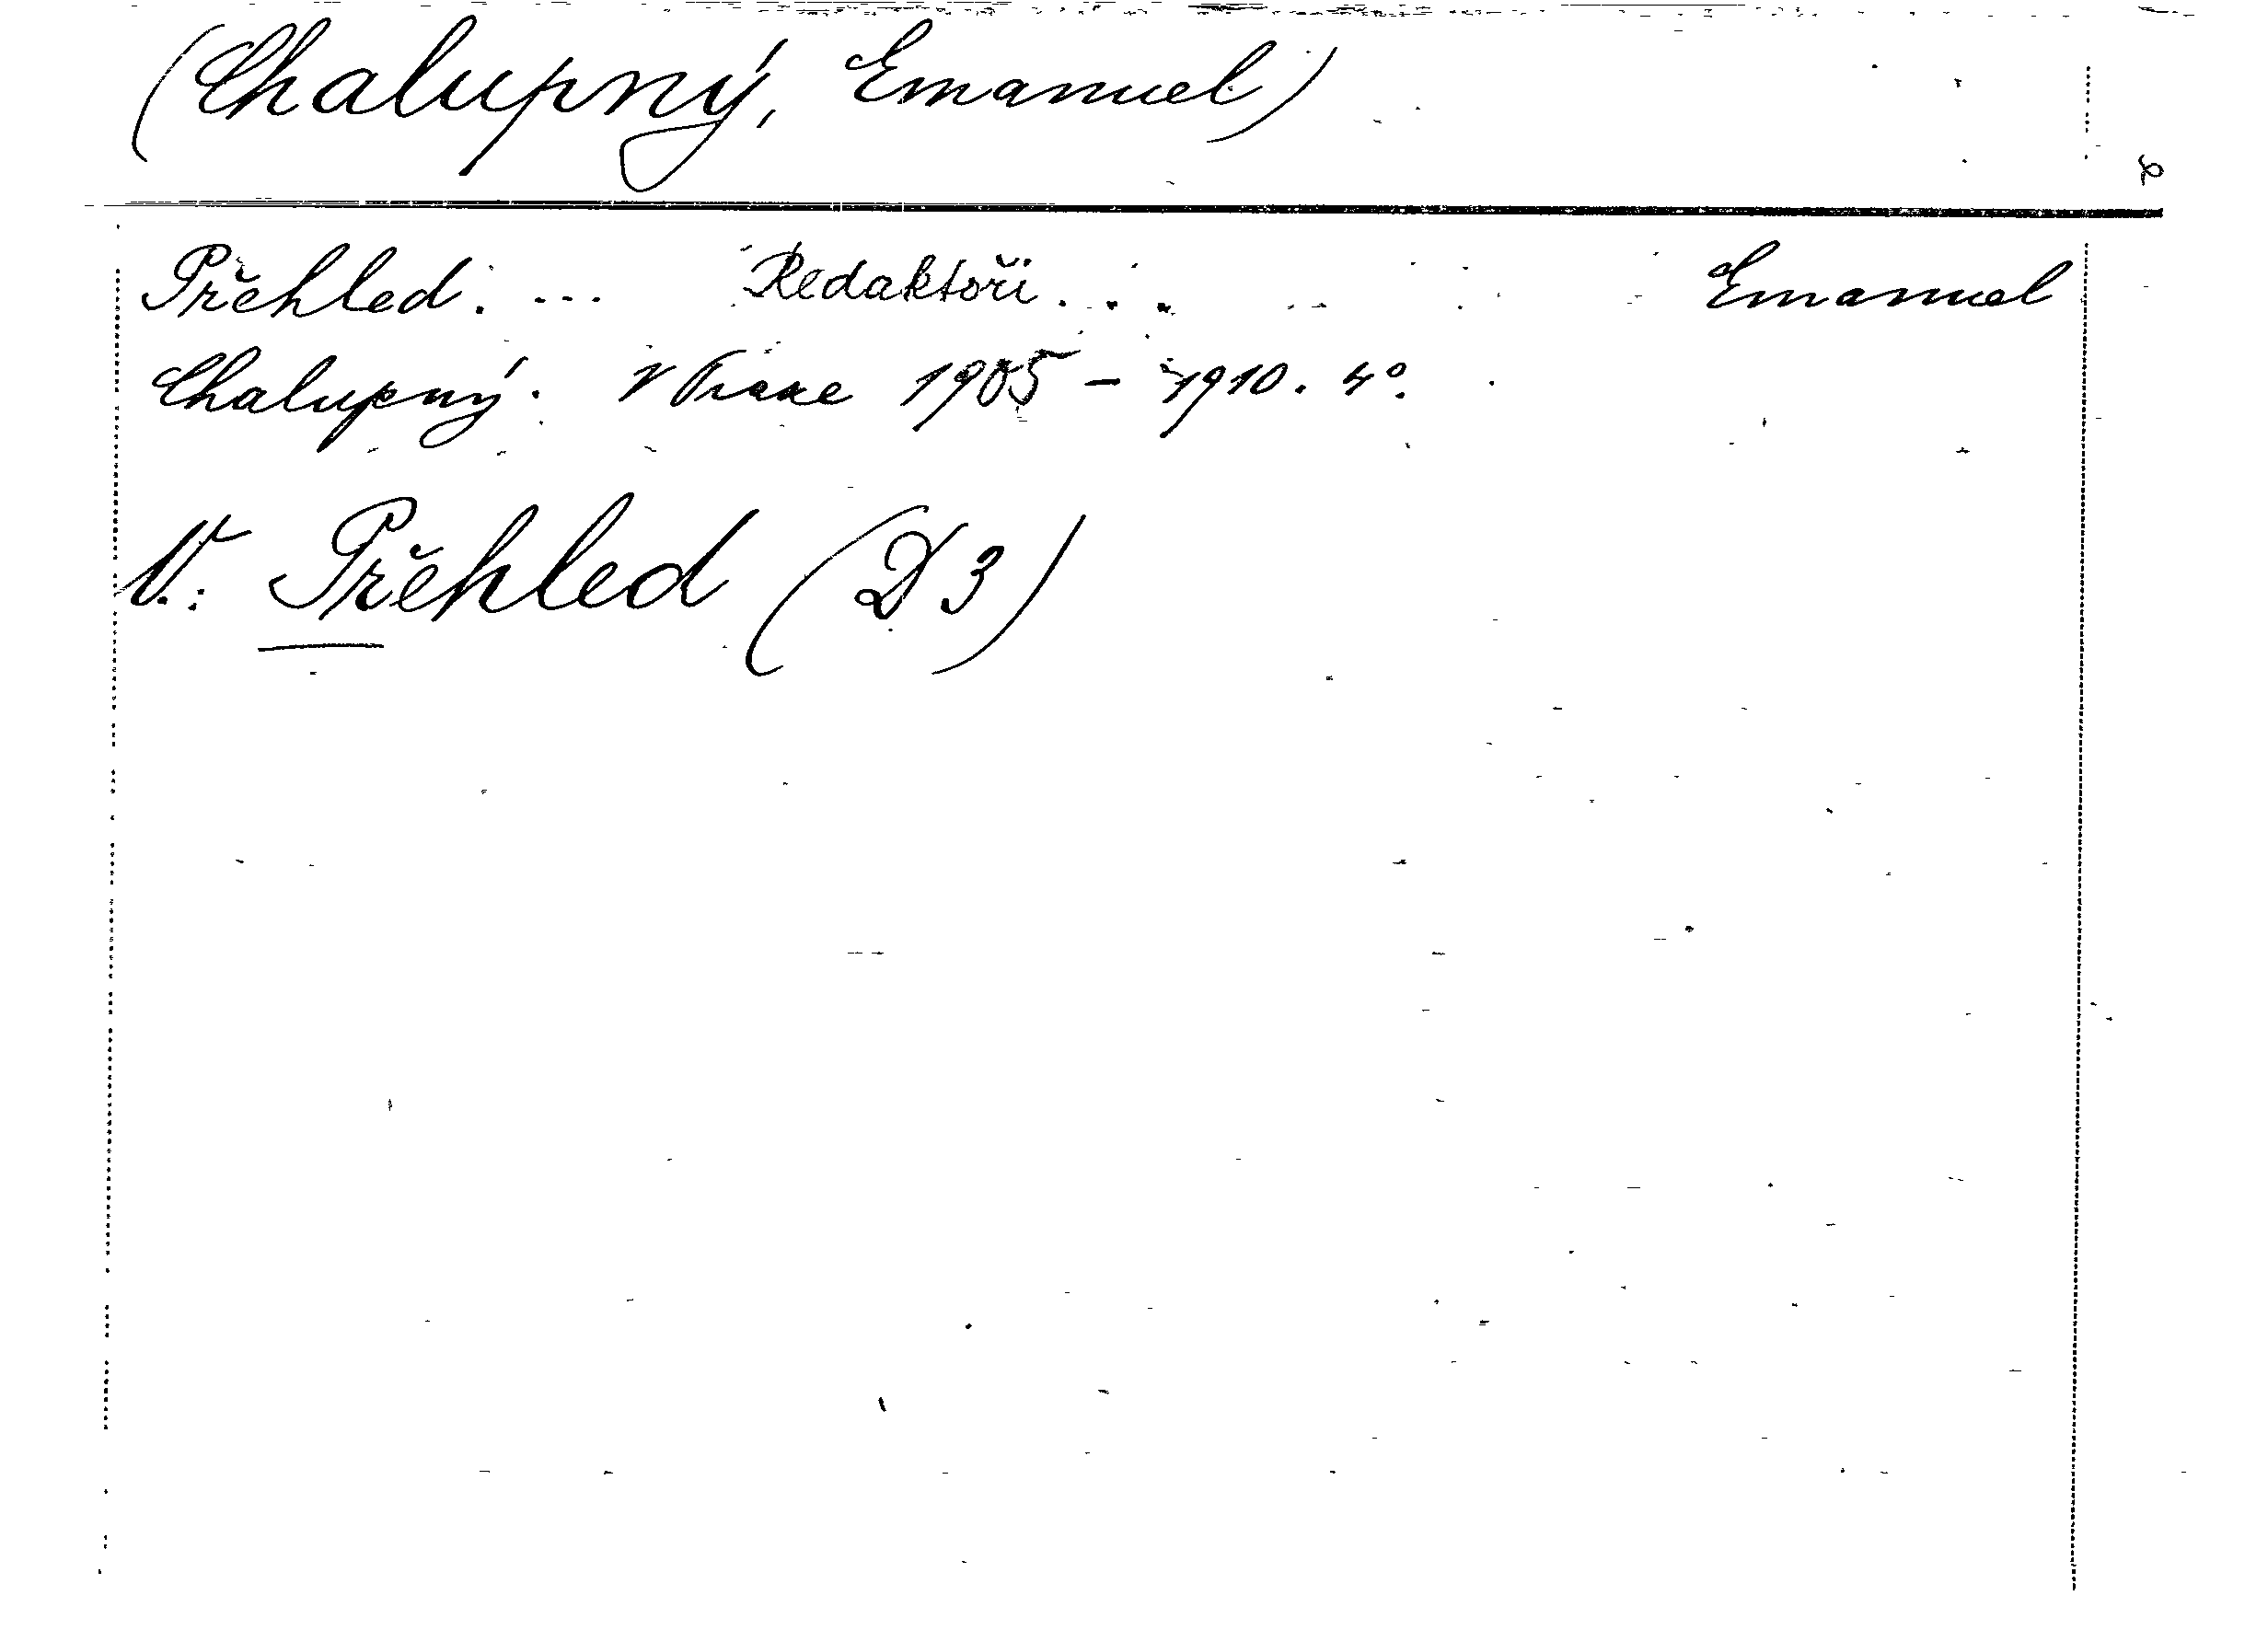 (Chalupný, Emanuel)
Přehled. ... Redaktoři ... Emanuel
Chalupný. V Praze 1905 - 1910. 4°.
V.: Přehled (D 3)